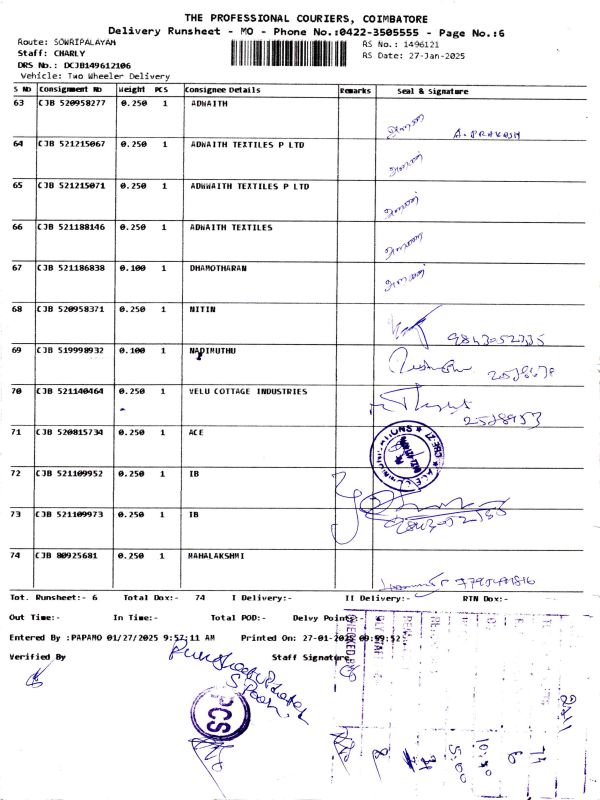 THE PROFESSIONAL COURIERS, COIMBATORE
Delivery Runsheet - MO - Phone No.:0422-3505555 - Page No.:6
Route: SOWRIPALAYAM
RS No.: 1496121
Staff: CHARLY
RS Date: 27-Jan-2025
DRS No.: DCJB149612106
Vehicle: Two Wheeler Delivery
S No Consignment No Weight PCS Consignee Details Remarks Seal & Signature
63 CJB 520958277 0.250 1 ADWAITH
A. PRAKASH
64 CJB 521215067 0.250 1 ADWAITH TEXTILES P LTD
65 CJB 521215071 0.250 1 ADWWAITH TEXTILES P LTD
66 CJB 521188146 0.250 1 ADWAITH TEXTILES
67 CJB 521186838 0.100 1 DHAMOTHARAN
68 CJB 520958371 0.250 1 NITIN
69 CJB 519998932 0.100 1 NADIMUTHU
70 CJB 521140464 0.250 1 VELU COTTAGE INDUSTRIES
71 CJB 520815734 0.250 1 ACE
72 CJB 521109952 0.250 1 IB
73 CJB 521109973 0.250 1 IB
74 CJB 80925681 0.250 1 MAHALAKSHMI
Tot. Runsheet:- 6 Total Dox:- 74 I Delivery:- II Delivery:- RTN Dox:-
Out Time:- In Time:- Total POD:- Delvy Points:-
Entered By :PAPAMO 01/27/2025 9:57:11 AM Printed On: 27-01-2025 09:59:52
Verified By Staff Signature
PCS